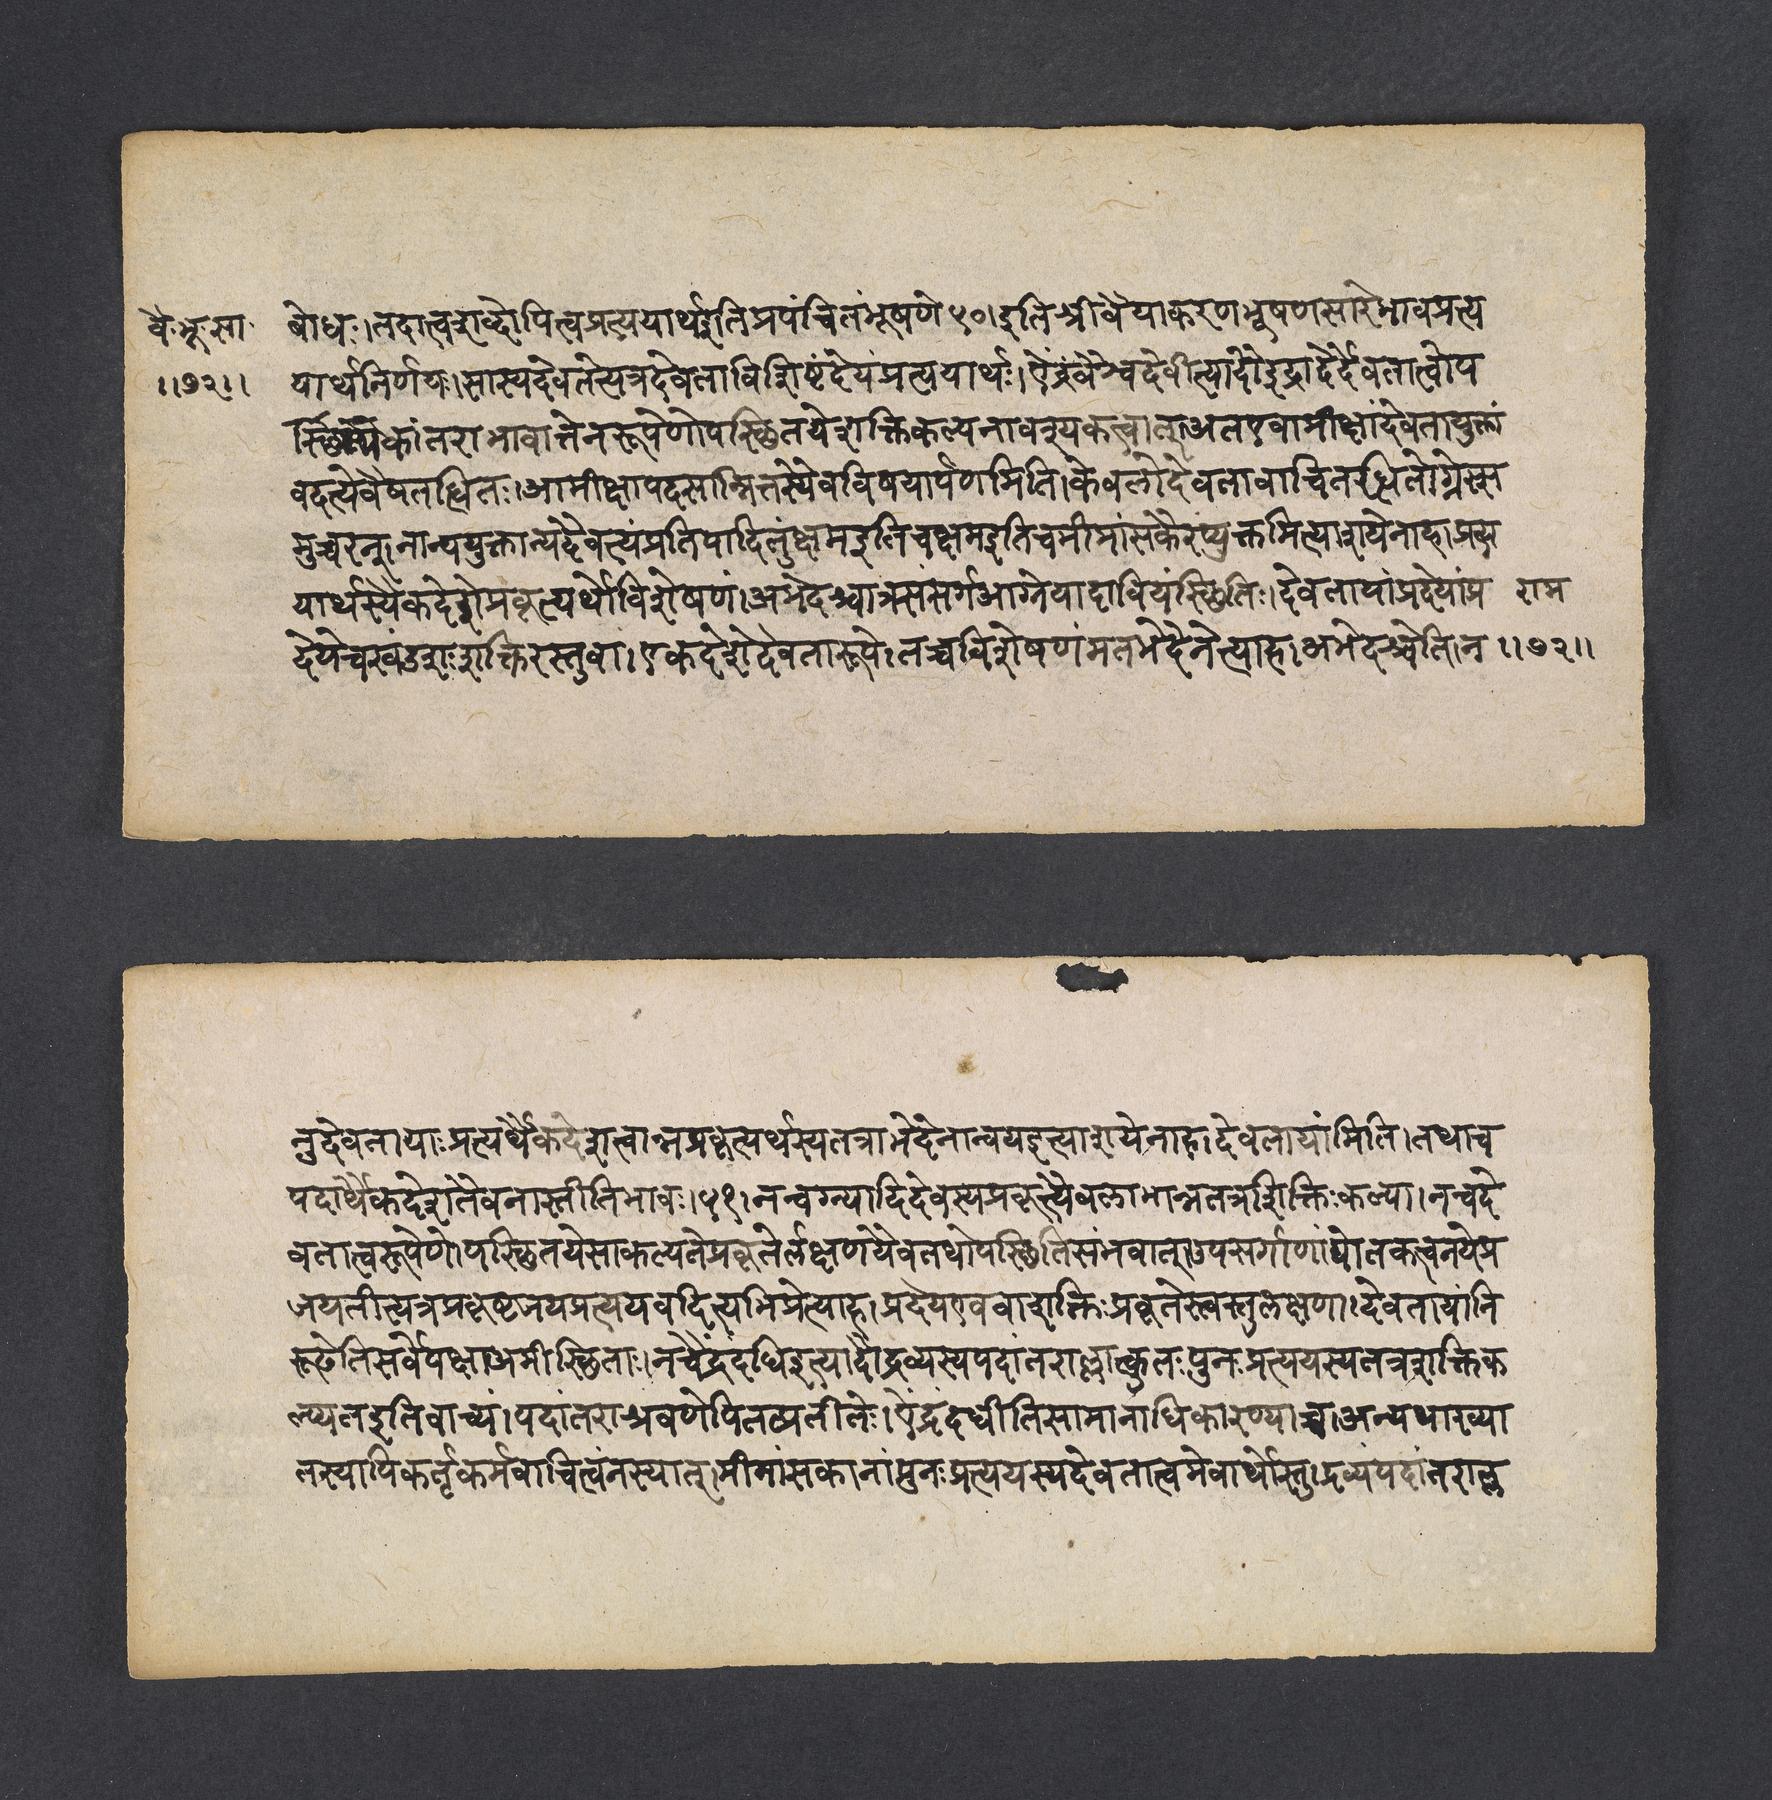 वै.भू.सा. बोधः।तदात्वशब्दोपित्वप्रत्ययार्थइतिप्रपंचितंभूषणे ५०।इतिश्रीवैयाकरणभूषणसारेभावप्रत्य
॥७२॥ यार्थनिर्णयः।सास्यदेवतेत्यत्रदेवताविशिष्टंदेयंप्रत्ययार्थः।ऐंद्रंवैश्वदेवीत्यादौइंद्रादेर्देवतात्वोप
कांतराभावात्तेनरूपेणोपस्थितयेशक्तिकल्पनावश्यकत्वात्।अतएवामीक्षांदेवतायुक्तां
वदत्येवैषतद्धितः।आमीक्षापदसान्नित्तस्यैवविषयार्पणमिति।केवलोदेवतावाचितद्धितोग्नेस्स
मुच्चरन्।नान्ययुक्तान्यदेवत्यंप्रतिपादितुंक्षमइतिचक्षमइतिचमीमांसकैरप्युक्तमित्याशयेनाह।प्रत्य
यार्थस्यैकदेशेप्रकृत्यर्थोविशेषणं।अभेदश्चात्रसंसर्गआग्नेयादावियंस्थितिः।देवतायांप्रदेयांप्र राम
देयेचखंडशःशक्तिरस्तुवा।एकदेशेदेवतारूपे।तच्चविशेषणंमतभेदेनेत्याह।अभेदश्चेति।न ॥७२॥
नुदेवतायाःप्रत्यर्थैकदेशत्वान्नप्रकृत्यर्थस्यतत्राभेदेनान्वयइत्याशयेनाह।देवतायांमिति।तथाच
पदार्थैकदेशतैवनास्तीतिभावः।५१।नन्वग्न्यादिदेवस्यप्रकृत्यैवलाभान्नतत्रशिक्तिःकल्पा।नन्वदे
वतात्वरूपेणोपस्थितयेसाकल्यतेप्रकृतेर्लक्षणयैवतथोपस्थितिसंभवात्।उपसर्गाणांद्योतकत्वनयेप्र
जयतीत्यत्रप्रकृष्टजयप्रत्ययवदित्यभिप्रेत्याह।प्रदेयएववाशक्तिःप्रकृतेस्त्वस्तुलक्षणा।देवतायांनि
रूढेतिसर्वेपक्षाअमीस्थिताः।नचैंद्रंदधिइत्यादौद्रव्यस्यपदांतराल्लात्कुतःपुनःप्रत्ययस्यतत्रशक्तिक
ल्प्यतइतिवाच्यं।पदांतराश्रवणेपितत्प्रतीतेः।ऐंद्रंदधीतिसामानाधिकारण्याच्च।अन्यथाख्या
तस्यापिकर्तृकर्मवाचित्वंनस्यात्।मीमांसकानांपुनःप्रत्ययस्यदेवतात्वमेवार्थोस्तु।द्रव्यंपदांतराल्ल